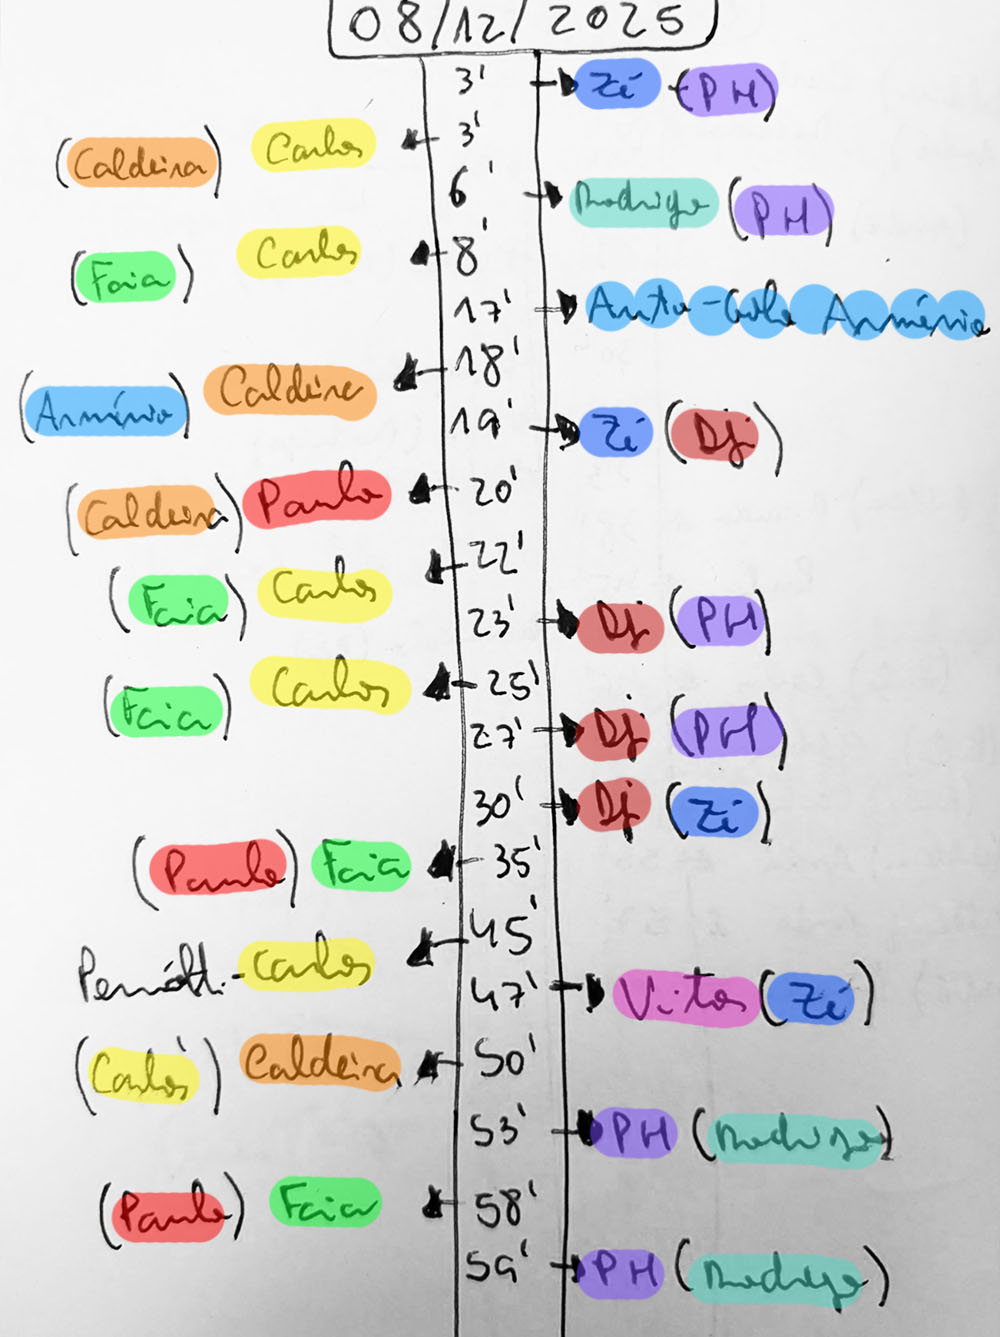 08/12/2025
3' Zé (PH)
(Caldeira) Carlos 3'
6' Rodrigo (PH)
(Faia) Carlos 8'
17' Auto-Golo Arménio
(Arménio) Caldeira 18'
19' Zé (Dj)
(Caldeira) Paulo 20'
(Faia) Carlos 22'
23' Dj (PH)
(Faia) Carlos 25'
27' Dj (PH)
30' Dj (Zé)
(Paulo) Faia 35'
Penálti - Carlos 45'
47' Vitor (Zé)
(Carlos) Caldeira 50'
53' PH (Rodrigo)
(Paulo) Faia 58'
59' PH (Rodrigo)